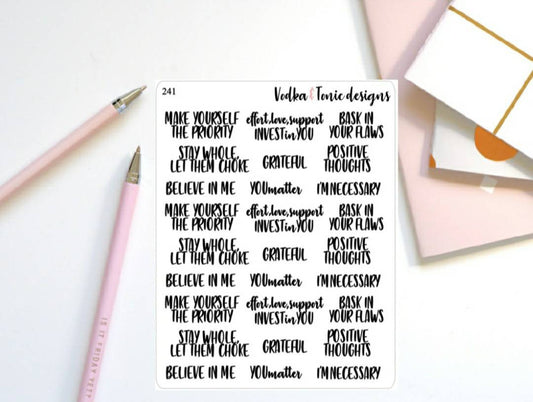 241
Vodka & Tonic designs
MAKE YOURSELF effort,love,support BASK IN
THE PRIORITY INVEST in YOU YOUR FLAWS
STAY WHOLE, GRATEFUL POSITIVE
LET THEM CHOKE THOUGHTS
BELIEVE IN ME YOU matter I'M NECESSARY
MAKE YOURSELF effort,love,support BASK IN
THE PRIORITY INVEST in YOU YOUR FLAWS
STAY WHOLE, GRATEFUL POSITIVE
LET THEM CHOKE THOUGHTS
BELIEVE IN ME YOU matter I'M NECESSARY
MAKE YOURSELF effort,love,support BASK IN
THE PRIORITY INVEST in YOU YOUR FLAWS
STAY WHOLE, GRATEFUL POSITIVE
LET THEM CHOKE THOUGHTS
BELIEVE IN ME YOU matter I'M NECESSARY
IS IT FRIDAY YET?